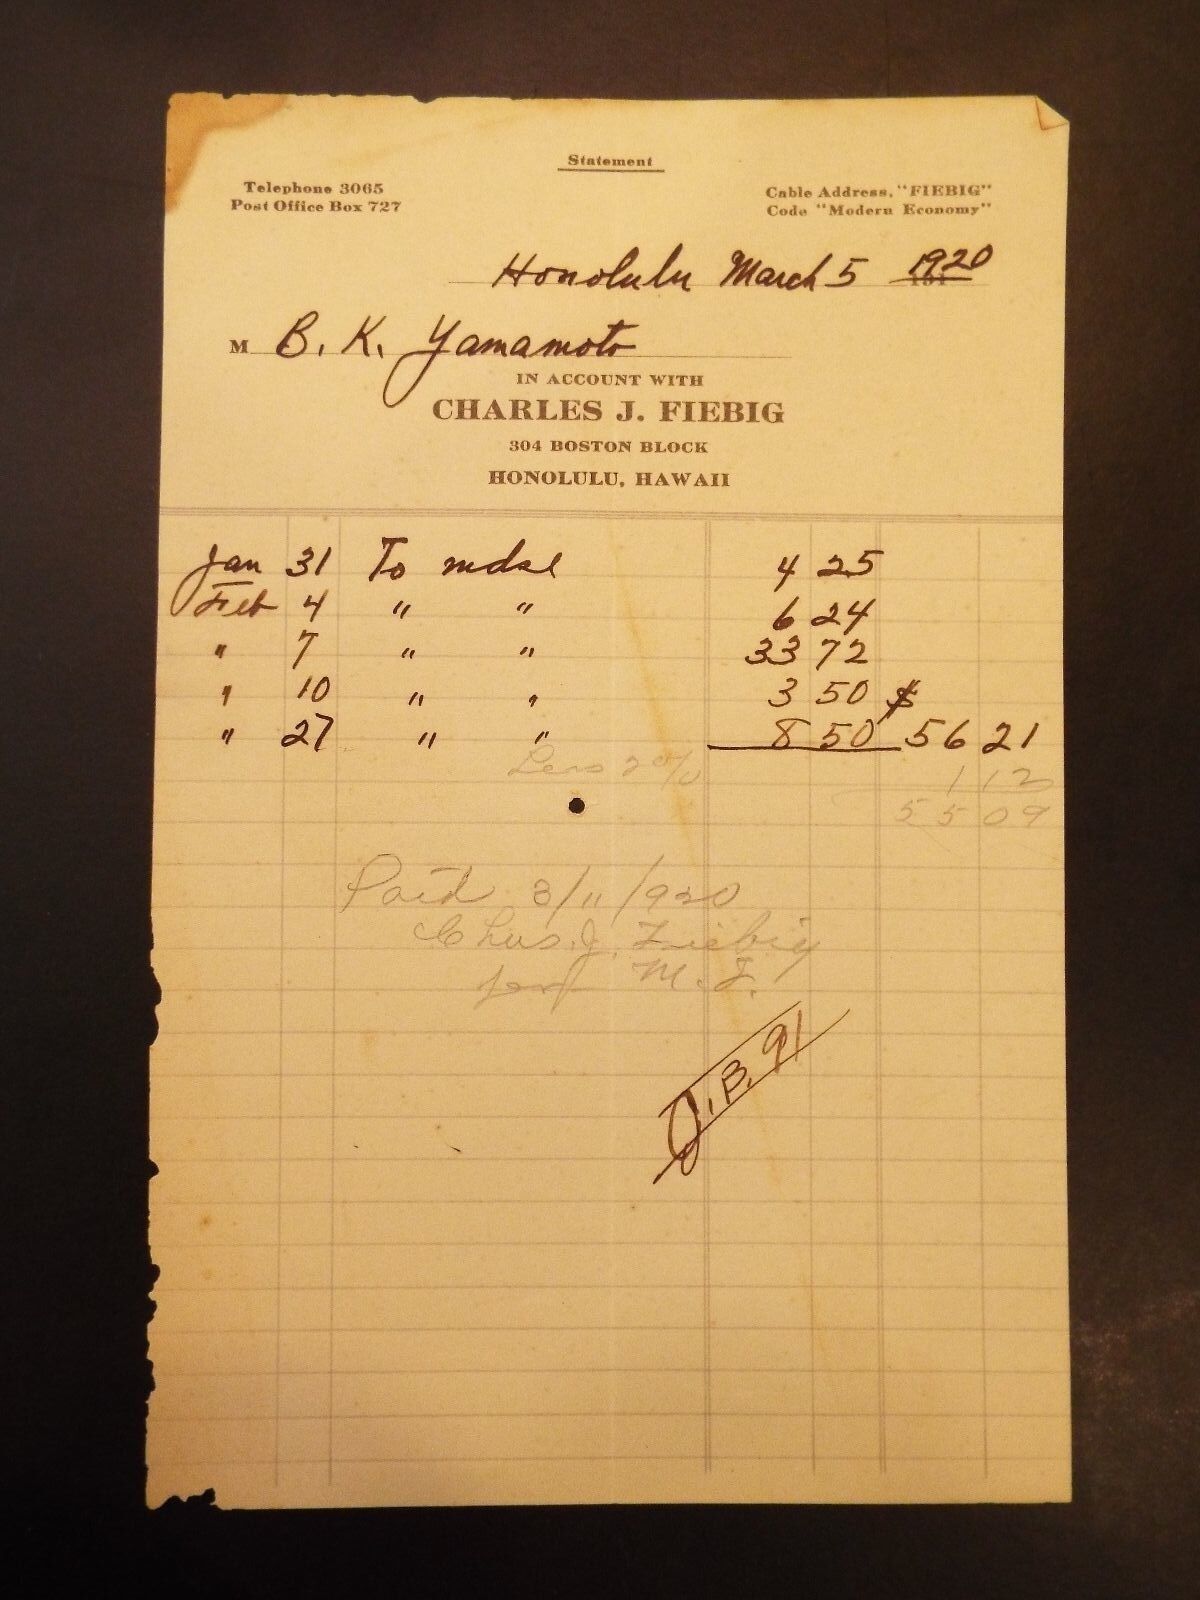 Statement
Telephone 3065
Post Office Box 727
Cable Address, "FIEBIG"
Code "Modern Economy"
Honolulu March 5 1920
M B. K. Yamamoto
IN ACCOUNT WITH
CHARLES J. FIEBIG
304 BOSTON BLOCK
HONOLULU, HAWAII
Jan 31 To mdse 4 25
Feb 4 " " 6 24
" 7 " " 33 72
" 10 " " 3 50 $
" 27 " " 8 50 56 21
Less 2% 1 12
55 09
Paid 3/11/920
Chas. J. Fiebig
per M. F.
J.B. 91